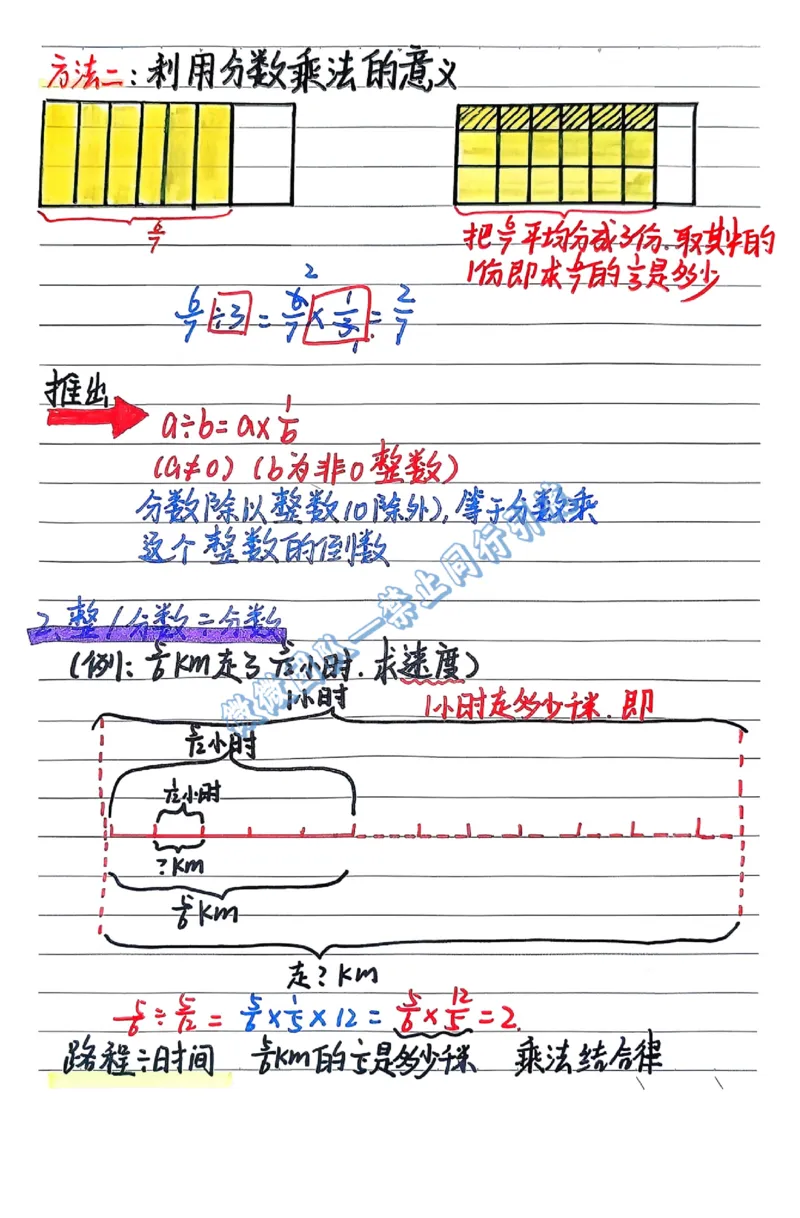 方法二:利用分数乘法的意义
6/7
把6/7平均分成3份.取其中的
1份即求6/7的1/3是多少
2
6/7÷3=6/7×1/3=2/7
1
推出
a÷b=a×1/b
(a≠0)(b为非0整数)
分数除以整数(0除外),等于分数乘
这个整数的倒数
2.整/分数÷分数
(例:5/6km走了5/12小时.求速度)
1小时
1小时走多少千米.即
5/12小时
1/12小时
?km
5/6km
走?km
5/6÷5/12=5/6×1/5×12=5/6×12/5=2.
路程÷时间 5/6km的1/5是多少千米 乘法结合律
微微团队一禁止同行